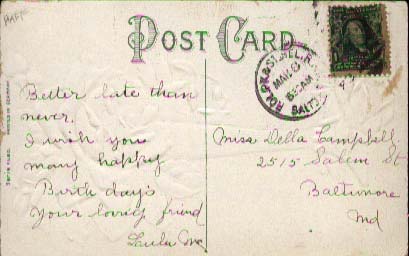 POST CARD
Better late than
never.
I wish you
many happy
Birth days
Your loving friend
Miss Della Campbell
2515 Salem St
Baltimore
Md